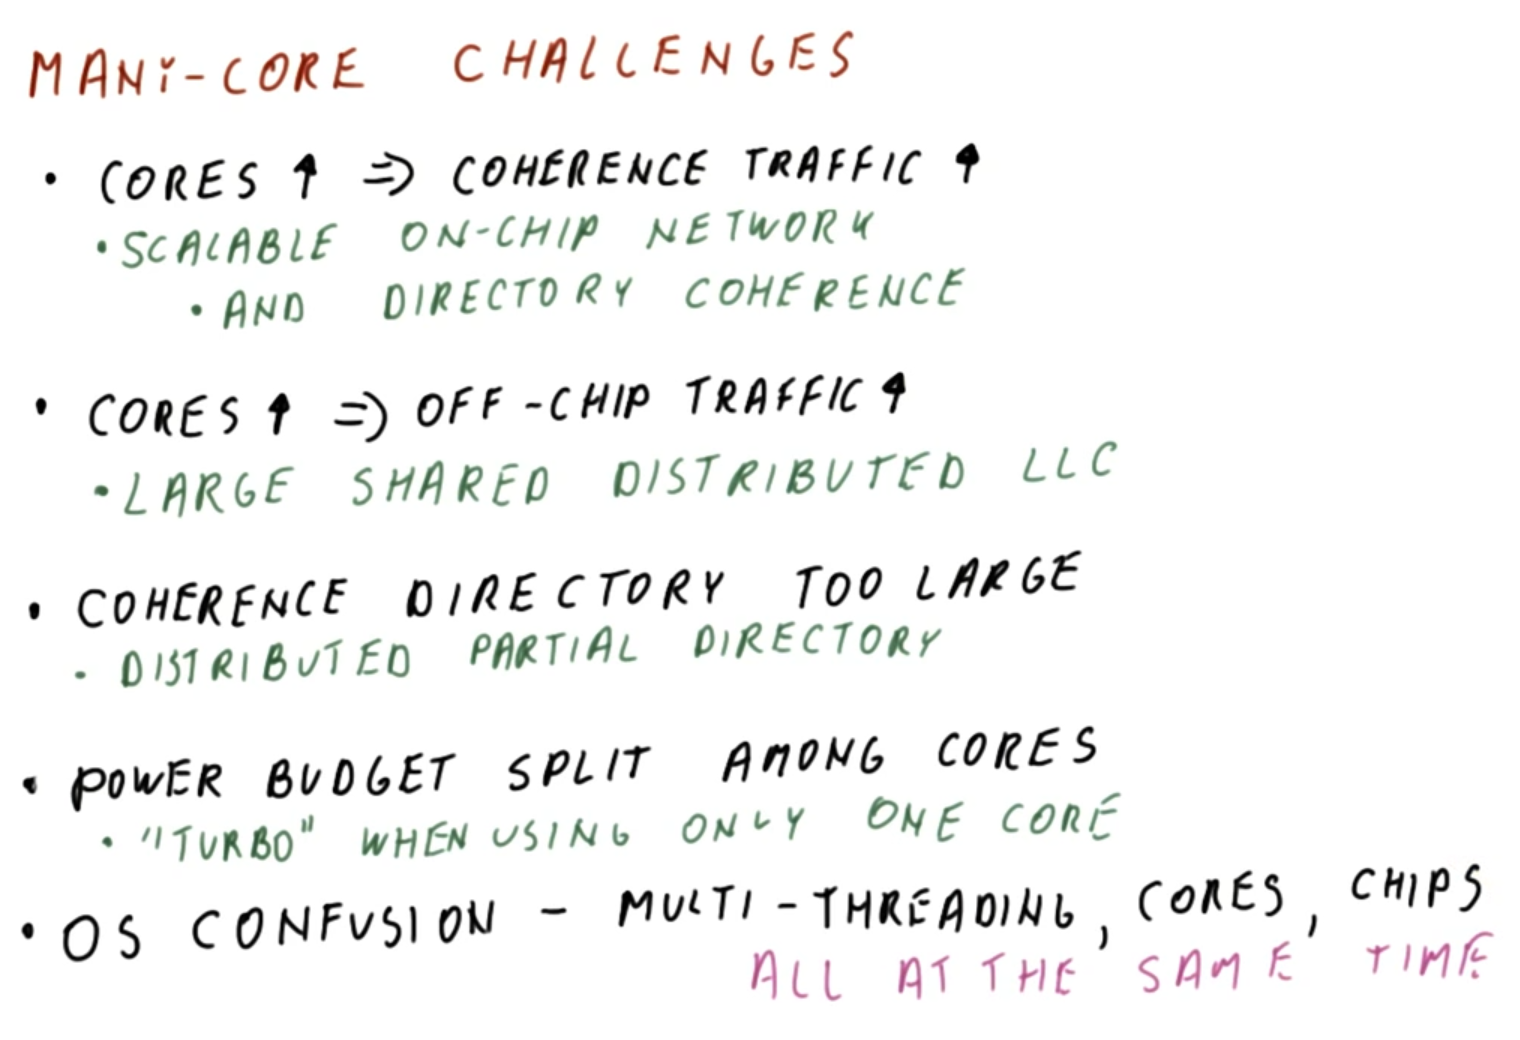 MANi-CORE CHALLENGES
• CORES ↑ => COHERENCE TRAFFIC ↑
• SCALABLE ON-CHIP NETWORK
• AND DIRECTORY COHERENCE
• CORES ↑ => OFF-CHIP TRAFFIC ↑
• LARGE SHARED DISTRIBUTED LLC
• COHERENCE DIRECTORY TOO LARGE
- DISTRIBUTED PARTIAL DIRECTORY
• POWER BUDGET SPLIT AMONG CORES
• "TURBO" WHEN USING ONLY ONE CORE
• OS CONFUSION - MULTI-THREADING, CORES, CHIPS
ALL AT THE SAME TIME